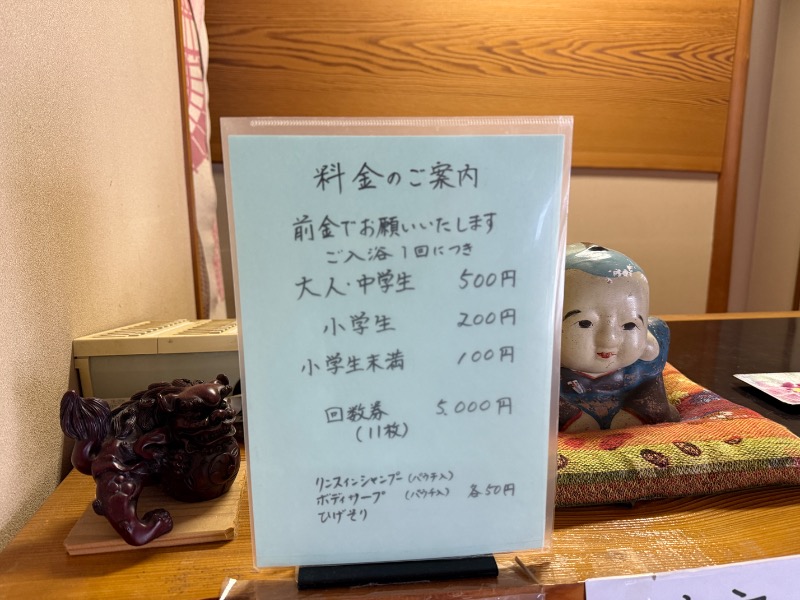 料金のご案内
前金でお願いいたします
ご入浴1回につき
大人・中学生 500円
小学生 200円
小学生未満 100円
回数券 5,000円
(11枚)
リンスインシャンプー(パウチ入)
ボディソープ (パウチ入) 各50円
ひげそり